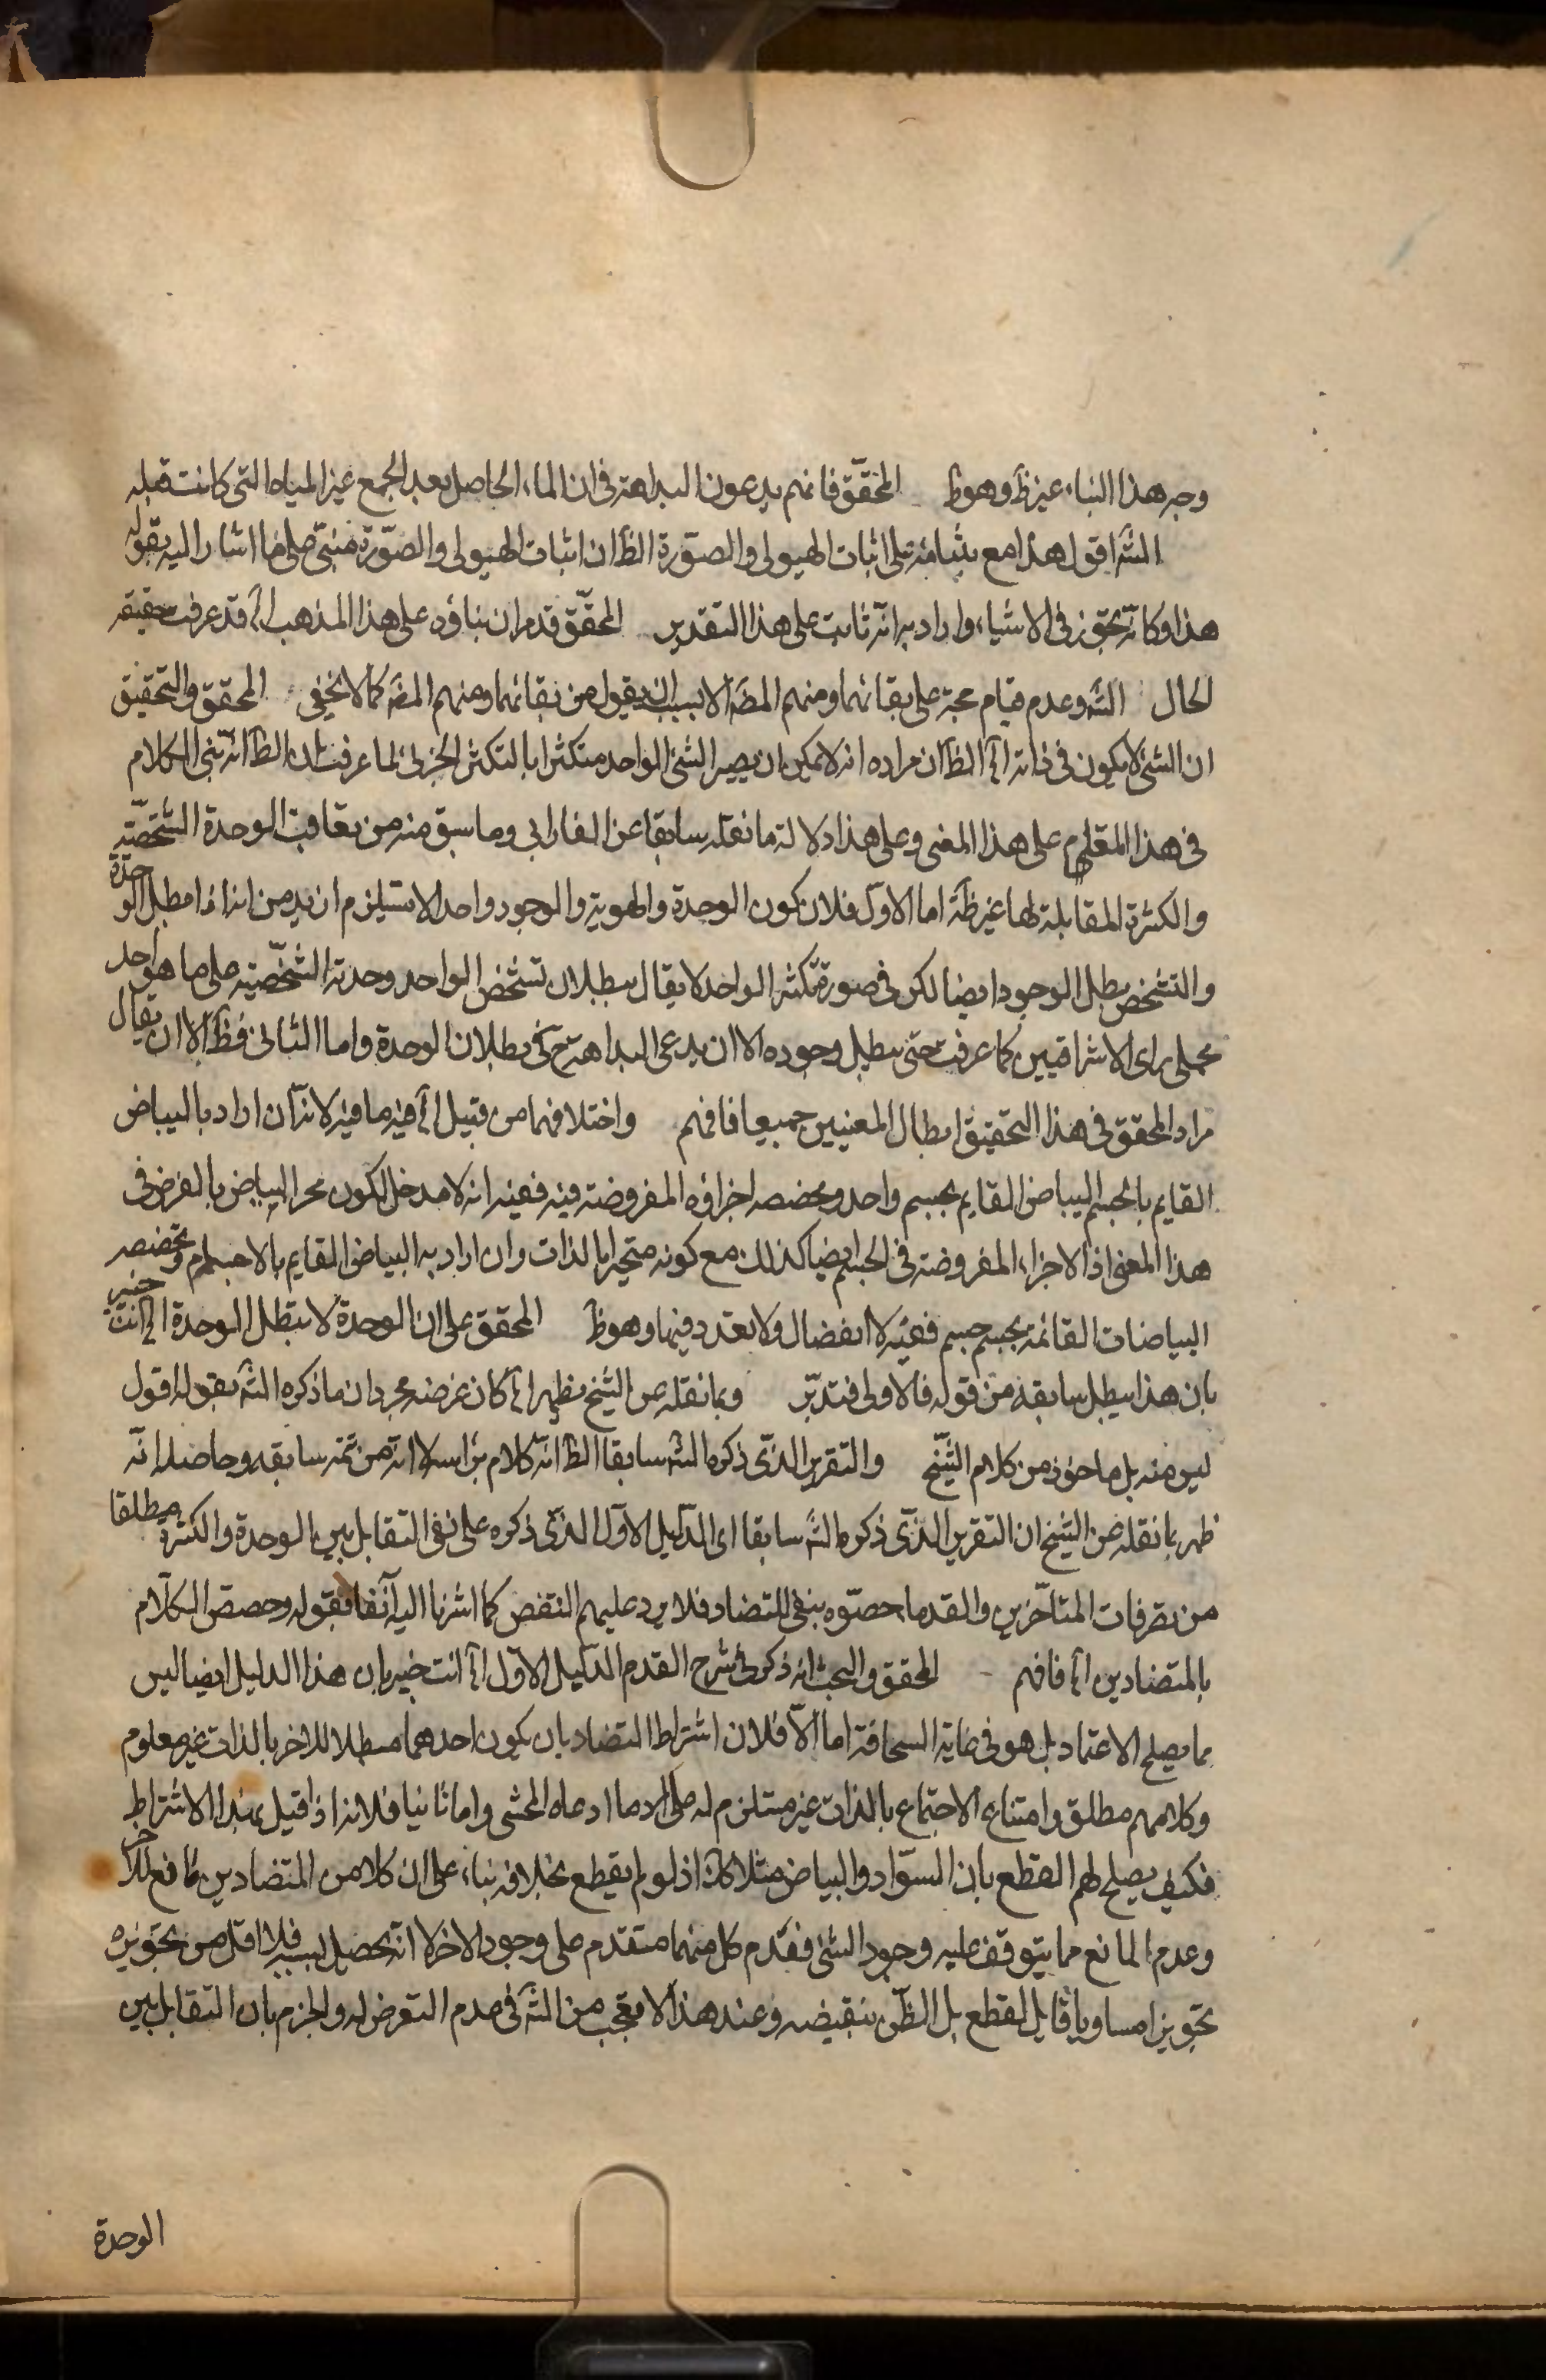 وجه هذا البناء غير ظ وهو ظ المحقّق فانهم يدعون البداهة فى ان الماء الحاصل بعد الجمع غير المياه التى كانت قبله
الشه اقول هذا مع بنائه على اثبات الهيولى والصورة الظ ان اثبات الهيولى والصّورة مبنى على ما اشار اليه بقوله
هذا وكانّه تجوّز فى الاشياء واراد به انّه ثابت على هذا التقدير المحقّق قدم ان بناؤه على هذا المذهب آه قد عرفت حقيقه
الحال الشه وعدم قيام حجة على بقائهما ومنهم المصّه الا بسبب ان يقول من بقائهما ومنهم المصّه كما لا يخفى المحقق والتحقيق
ان الشئ لا يكون فى ذاته آه الظ ان مراده انه لا يمكن ان يصير الشئ الواحد متكثرا بالتكثر الجزئى لما عرفت ان الظ انّه بنى الكلام
فى هذا المقام على هذا المعنى وعلى هذا دلالة ما نقله سابقا عن الفارابى وما سبق منه من تعاقب الوحدة الشخصّيّه
والكثرة المقابلة لها غير ظة اما الاول فلان كون الوحدة والهوية والوجود واحد الا يستلزم ان يدمن انه اذا بطل الوحدة
والتشخص بطل الوجود ايضا لكن فى صورة تكثر الواحد لا يقال ببطلان تشخص الواحد وحدته الشخصّيه على ما هو احد
محملى راى الاشراقيين كما عرفت حتى يبطل وجوده الا ان يدعى البداهة ح فى بطلان الوحدة واما الثانى فظ الا ان يقال
مراد المحقق فى هذا التحقيق ابطال المعنيين جميعا فافهم واختلافهما من قبيل آه فيه ما فيه لانه ان اراد بالبياض
القايم بالجسم البياض القايم بجسم واحد وبحصصه اجزاؤه المفروضة فيه ففيه انه لا مدخل لكون محل البياض بالفرض فى
هذا المعنى اذ الاجزاء المفروضه فى الجسم ايضا كذلك مع كونه متحيزا بالذات وان اراد به البياض القايم بالاجسام وبحصصه
البياضات القائمة بجسم جسم ففيه لا انفصال ولا تعدد فيها وهو ظ المحقق على ان الوحدة لا تبطل الوحدة آه انت خبير
بان هذا يبطل سابقه من قوله فالاولى فتدبّر وبما نقله عن الشيخ يظهر آه كان غرضه مجرد ان ما ذكره الشه بقوله اقول
ليس منه بل ماخوذ من كلام الشّيخ والتقرير الذّى ذكره الشه سابقا الظ انّه كلام براسه لا انّه من تتمة سابقه وحاصله انّه
ظهر بما نقله عن الشيخ ان التقرير الذّى ذكره الشه سابقا اى الدّليل الاول الذّى ذكره على نفى التقابل بين الوحدة والكثرة مطلقا
من تصرفات المتاخّرين والقدماء خصّوه بنفى التضاد فلا يرد عليهم النقض كما اشرنا اليه آنفا فقوله وخصص الكلام
بالمتضادين آه فافهم المحقق والبحث انه ذكر فى شرح القدم الدّليل الاول آه انت خبير بان هذا الدليل ايضا ليس
مما يصلح الاعتماد بل هو فى غاية السخافة اما الا فلان اشتراط التضاد بان يكون احدهما مبطلا للاخر بالذات غير معلوم
وكلامهم مطلق وامتناع الاجتماع بالذات غير مستلزم له على ما ادعاه المحشى واما ثانيا فلانه اذا قيل بهذا الاشتراط
فكيف يصلح لهم القطع بان السّواد والبياض مثلا كك اذ لو لم يقطع بخلافه بناء على ان كلا من المتضادين مانع للاخر
وعدم المانع مما يتوقف عليه وجود الشئ فعدم كل منهما متقدم على وجود الاخر لا انه يحصل بسببه فلا اقل من تجويزه
تجويزا مساويا قابل القطع بل الظّن بنقيضه وعند هذا لا تعجب من الشه فى عدم التعرض له والجزم بان التقابل بين
الوحدة